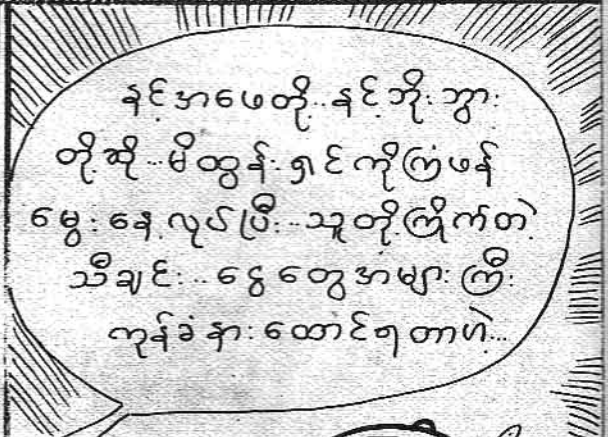 နင့်အဖေတို့..နင့်ဘိုးဘွား
တို့ဆို...မိထွန်းရှင်ကိုကြံဖန်
မွေးနေ့လုပ်ပြီး...သူတို့ကြိုက်တဲ့
သီချင်း...ငွေတွေအများကြီး
ကုန်ခံနားထောင်ရတာဟဲ့...